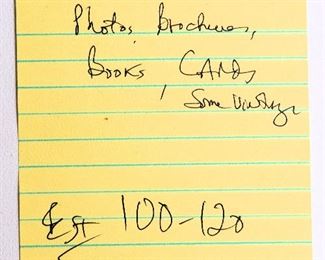 Photos, Brochures,
Books, CARDS,
Some Vintage
Est 100-120